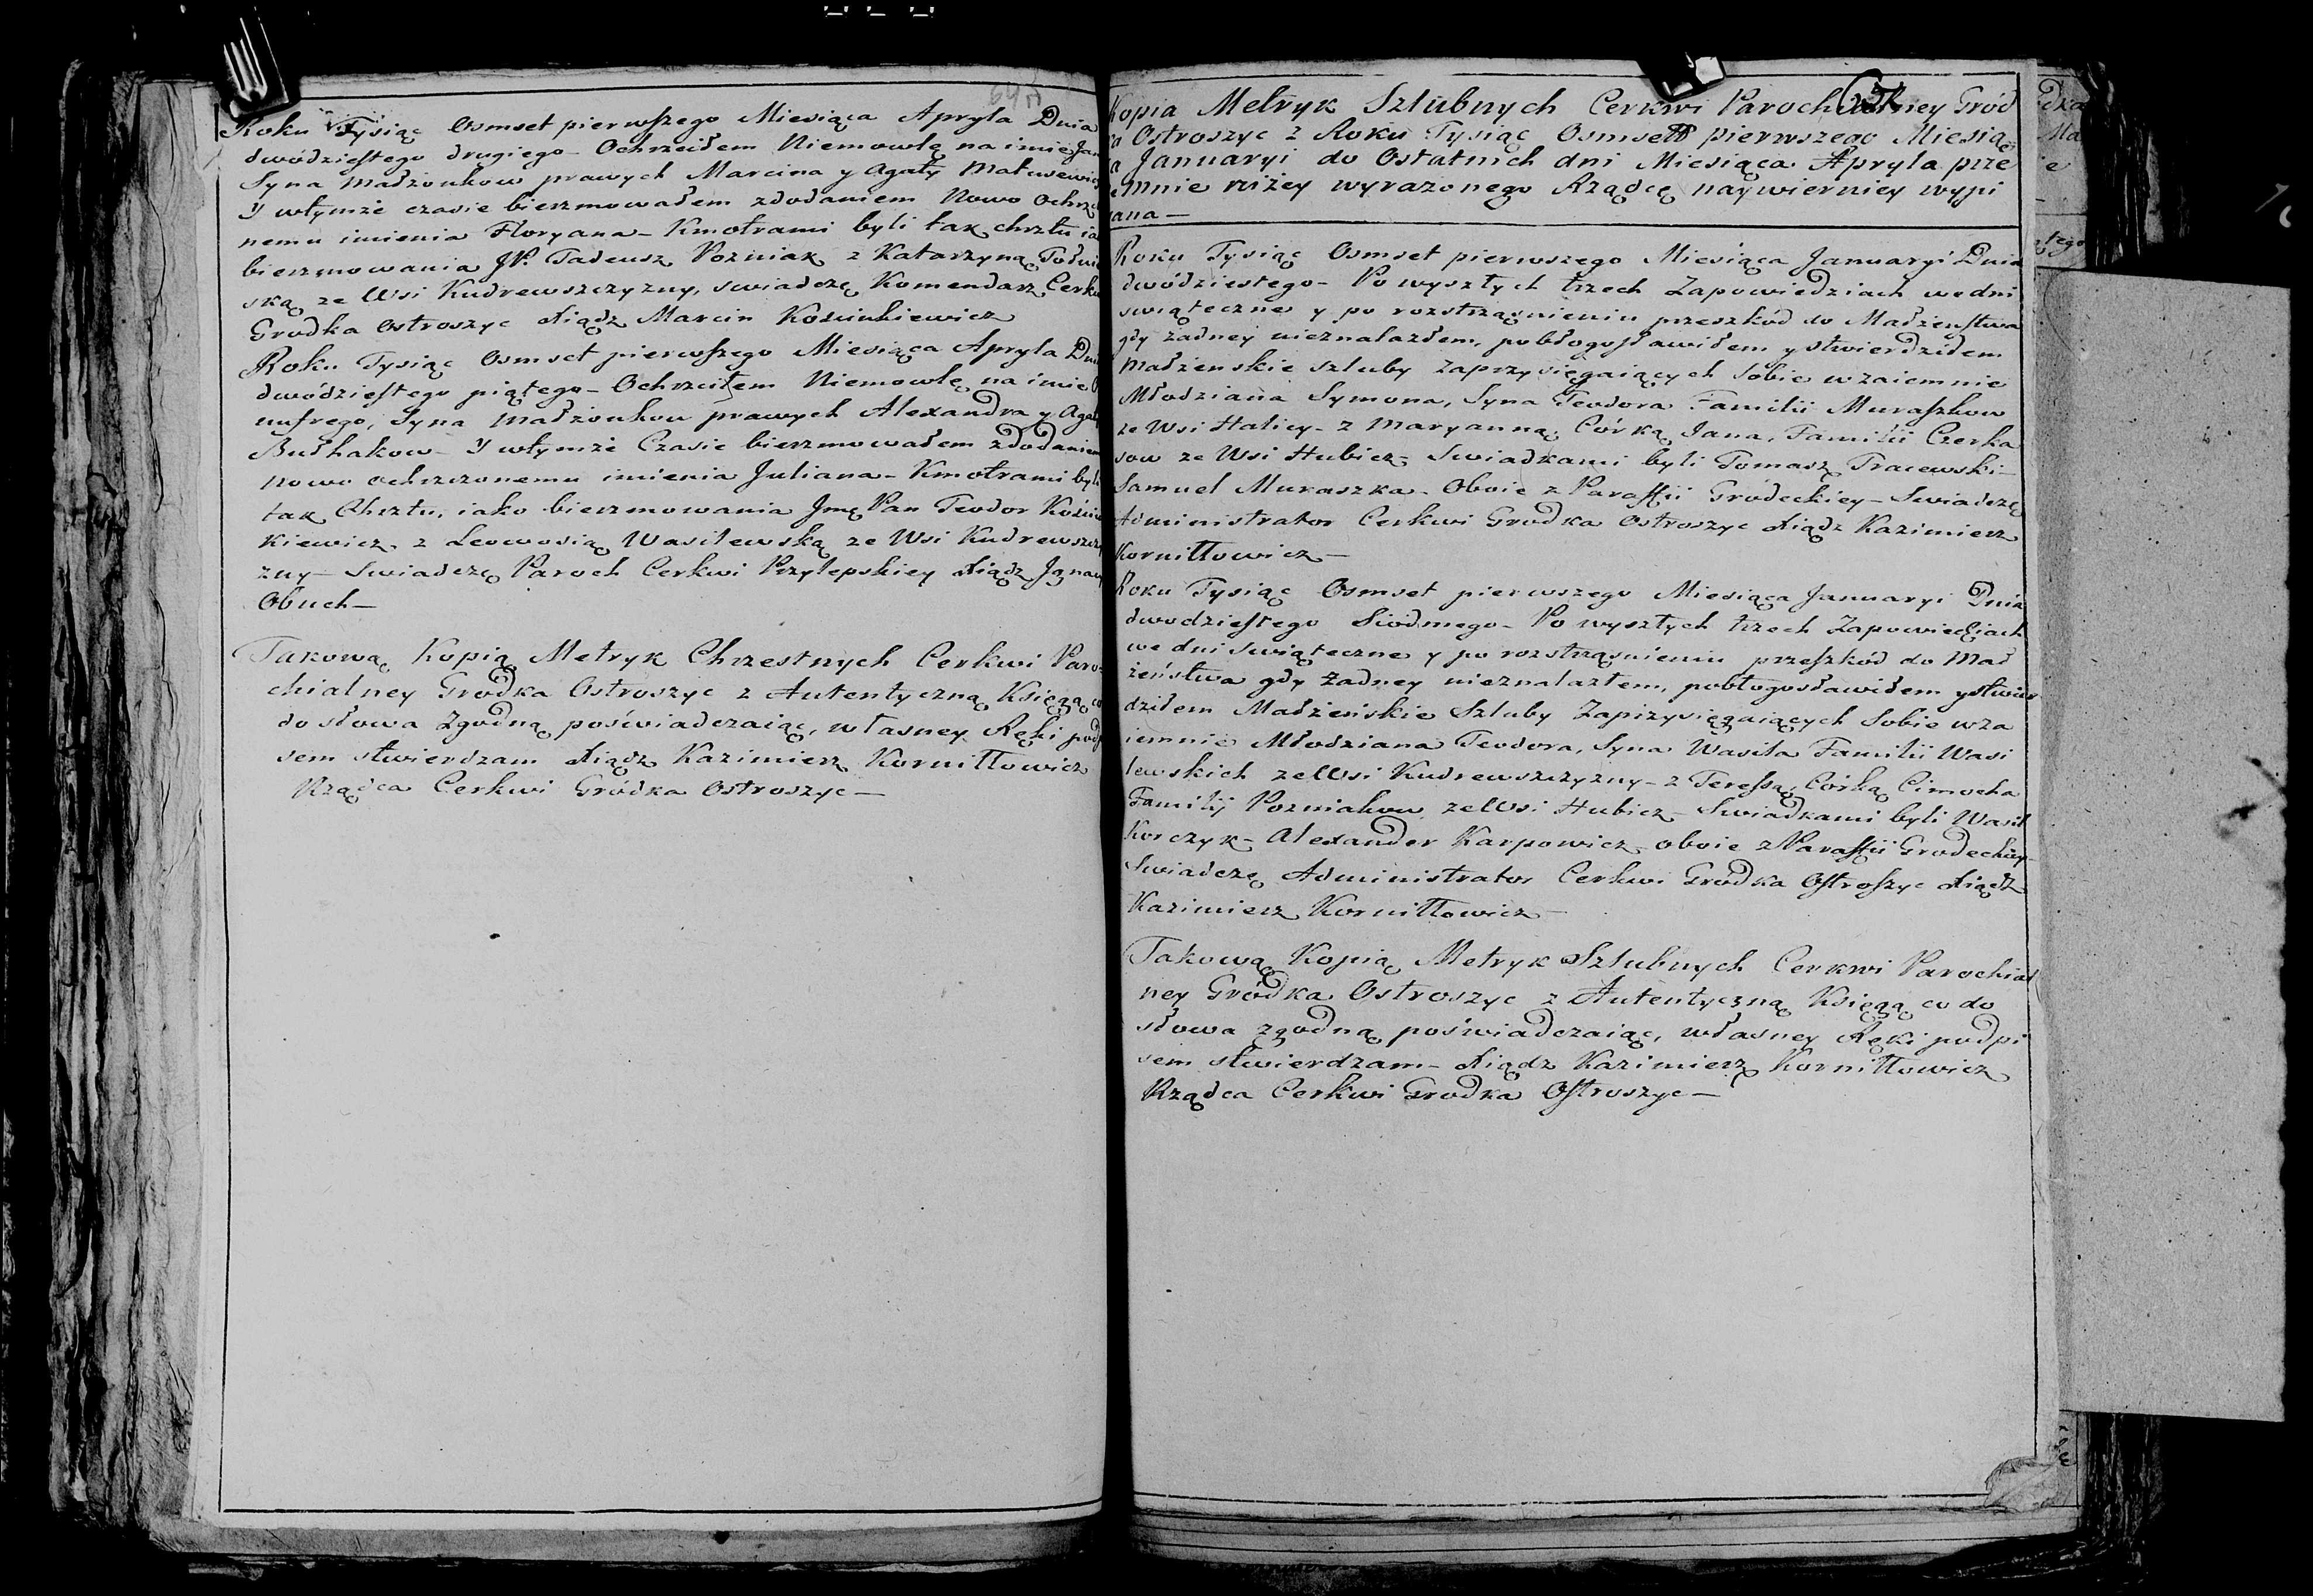 Roku Tysiąc Osmset pierwszego Miesiąca Apryla Dnia
dwódziestego drugiego - Ochrzciłem Niemowlę na imie Jan
Syna Małżonkow prawych Marcina y Agaty Matusewicz
Y wtymże czasie bierzmowałem zdodaniem Nowo Ochrzczo
nemu imienia Floryana - Kmotrami byli tak chrztu ia
bierzmowania JP. Tadeusz Pozniak z Katarzyną
ską ze Wsi Kudrewszczyzny, swiadczę Komendarz Cerkw
Grodka Ostroszyc Xiądz Marcin Kosciukiewicz
Roku Tysiąc Osmset pierwszego Miesiąca Apryla Dnia
dwódziestego piątego - Ochrzciłem Niemowlę na imie O
nufrego, Syna Małżonkow prawych Alexandra y Agaty
Budhakow - Y wtymże Czasie bierzmowałem zdodaniem
nowo ochrzczonemu imienia Juliana - Kmotrami byli
tak Chrztu, iako bierzmowania Jmę Pan Teodor Kosciu
kiewicz z Leowosią Wasilewską ze Wsi Kudrewszczy
zny - Swiadczę Paroch Cerkwi Przylepskiey Xiądz Jgnacy
Obuch -
Takową Kopią Metryk Chrzestnych Cerkwi Paro-
chialney Grodka Ostroszyc z Autentyczną Księgą co
do słowa Zgodną poświadczaiąc, własney Ręki podpi
sem stwierdzam Xiądz Kazimierz Korniłłowicz
Rządca Cerkwi Gródka Ostroszyc -
Kopia Metryk Szlubnych Cerkwi Parochialney Gród
ka Ostroszyc z Roku Tysiąc Osmset pierwszego Miesią
ca Januaryi do Ostatnich dni Miesiąca Apryla prze
zemnie niżey wyrażonego Rządcę naywierniey wypi
sana -
Roku Tysiąc Osmset pierwszego Miesiąca Januaryi Dnia
dwódziestego - Po wyszłych trzech Zapowiedziach wedni
swiąteczne y po rozstrząsnieniu przeszkód do Małżeństwa
gdy żadney nieznalazłem, pobłogosławiłem y stwierdziłem
małżenskie szluby zaprzysięgaiących sobie wzaiemnie
Młodziana Symona, Syna Teodora Familii Muraszkow
ze Wsi Halicy - z Maryanną Córką Jana, Familii Czerka
sow ze Wsi Hubicz - Swiadkami byli Tomasz Tracewski -
Samuel Muraszka - Oboie z Paraffii Gródeckiey - Swiadczę
Administrator Cerkwi Grodka Ostroszyc Xiądz Kazimierz
Korniłłowicz -
Roku Tysiąc Osmset pierwszego Miesiąca Januaryi Dnia
dwodziestego Siodmego - Po wyszłych trzech Zapowiedziach
we dni swiąteczne y po rozstrząsnieniu przeszkód do Mał
żeństwa gdy żadney nieznalazłem, pobłogosławiłem y stwier
dziłem Małżeńskie Szluby Zaprzysięgaiących Sobie wza
iemnie Młodziana Teodora, Syna Wasila Familii Wasi
lewskich ze Wsi Kudrewszczyzny - z Teressą, Córką Cimocha
Familij Pozniakow ze Wsi Hubicz - Swiadkami byli Wasil
Korczyk - Alexander Karpowicz - oboie z Paraffii Grodeckiey -
Swiadczę Administrator Cerkwi Gródka Ostroszyc Xiądz
Kazimierz Korniłłowicz -
Takową Kopią Metryk Szlubnych Cerkwi Parochial
ney Gródka Ostroszyc z Autentyczną Księgą co do
słowa zgodną poświadczaiąc, własney Ręki podpi
sem stwierdzam - Xiądz Kazimierz Korniłłowicz
Rządca Cerkwi Grodka Ostroszyc -